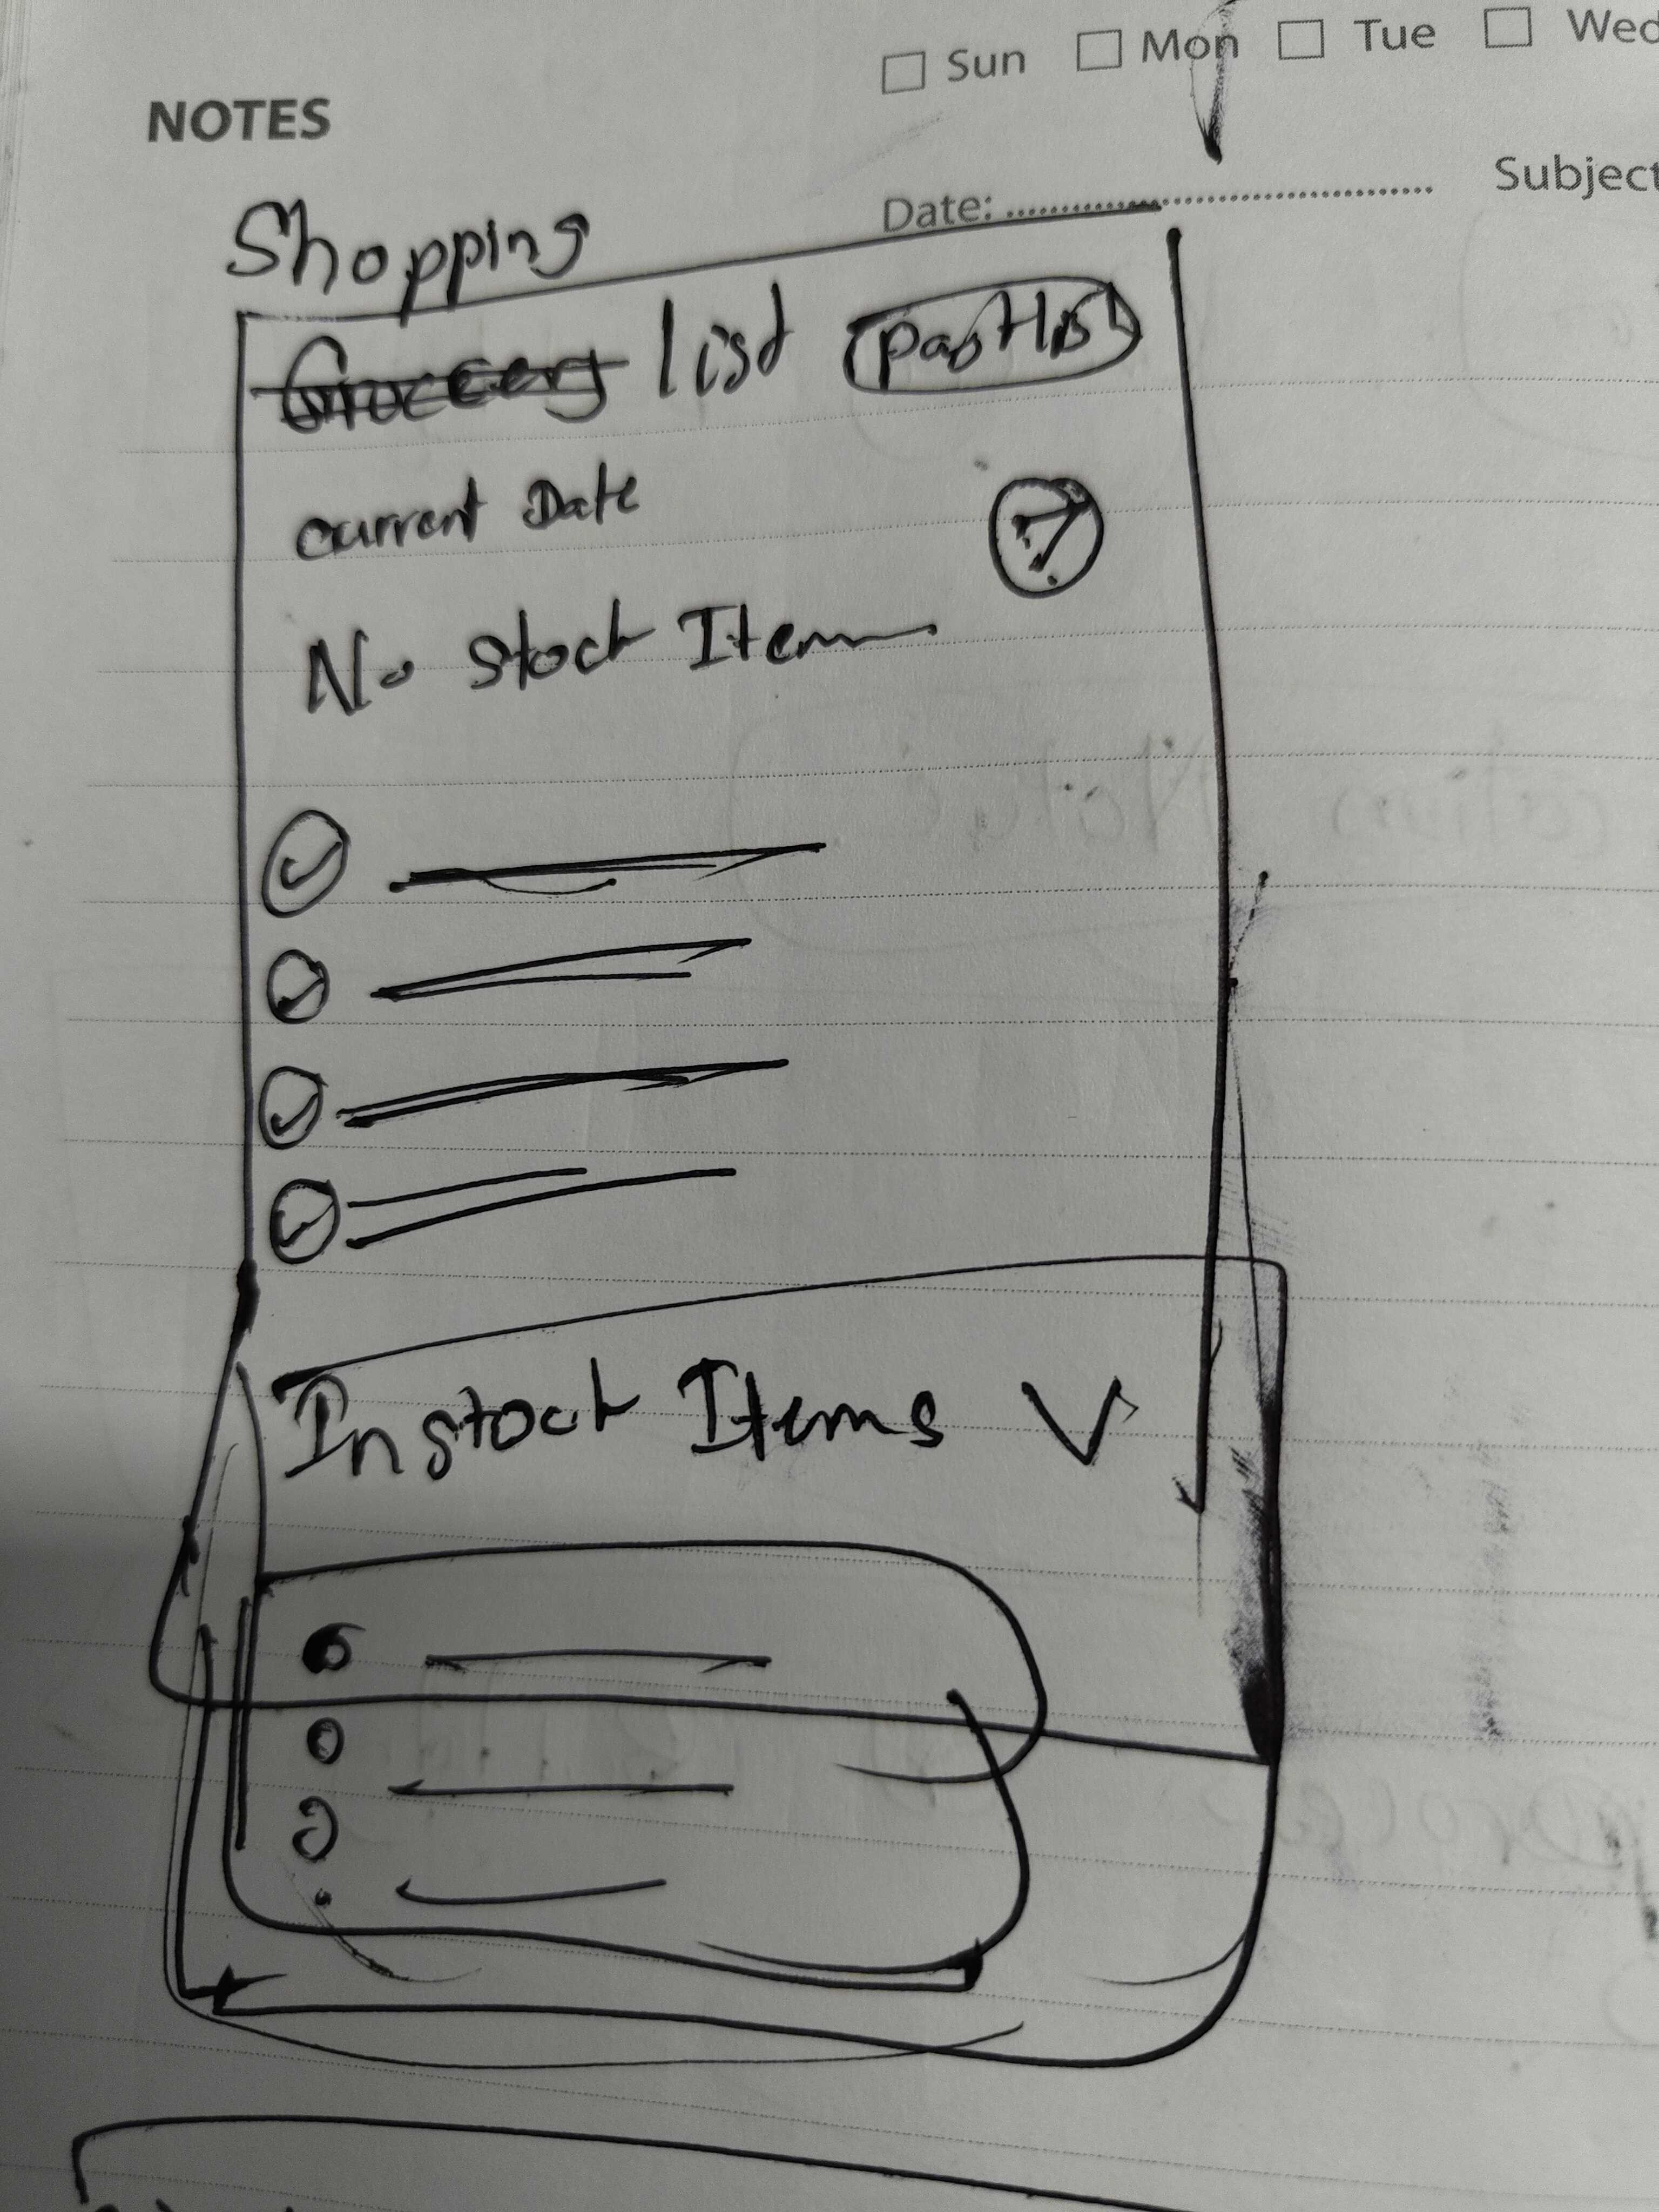 NOTES
Sun Mon Tue Wed
Date: Subject
Shopping
Grocery list past list
current Date
No stock Item
In stock Items